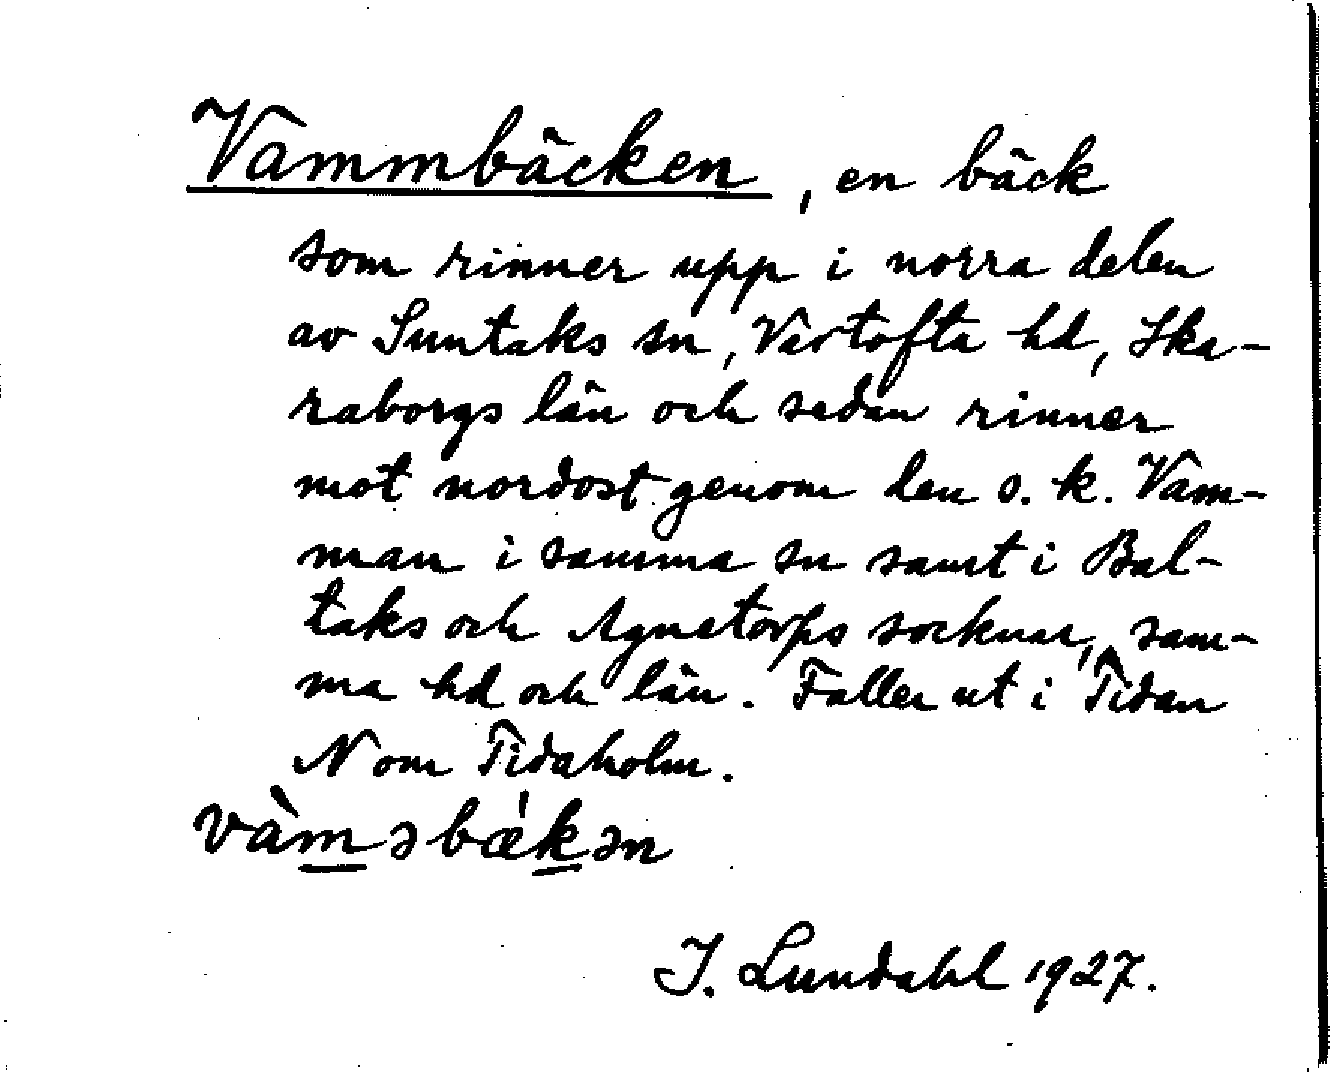 Vammbäcken, en bäck
som rinner upp i norra delen
av Suntaks sn, Vartofta hd, Ska-
raborgs län och sedan rinner
mot nordost genom den s. k. Vam-
man i samma sn samt i Bal-
taks och Agnetorps socknar, sam-
ma hd och län. Faller ut i Tidan
N om Tidaholm.
vàməbækən
J. Lundahl 1927.